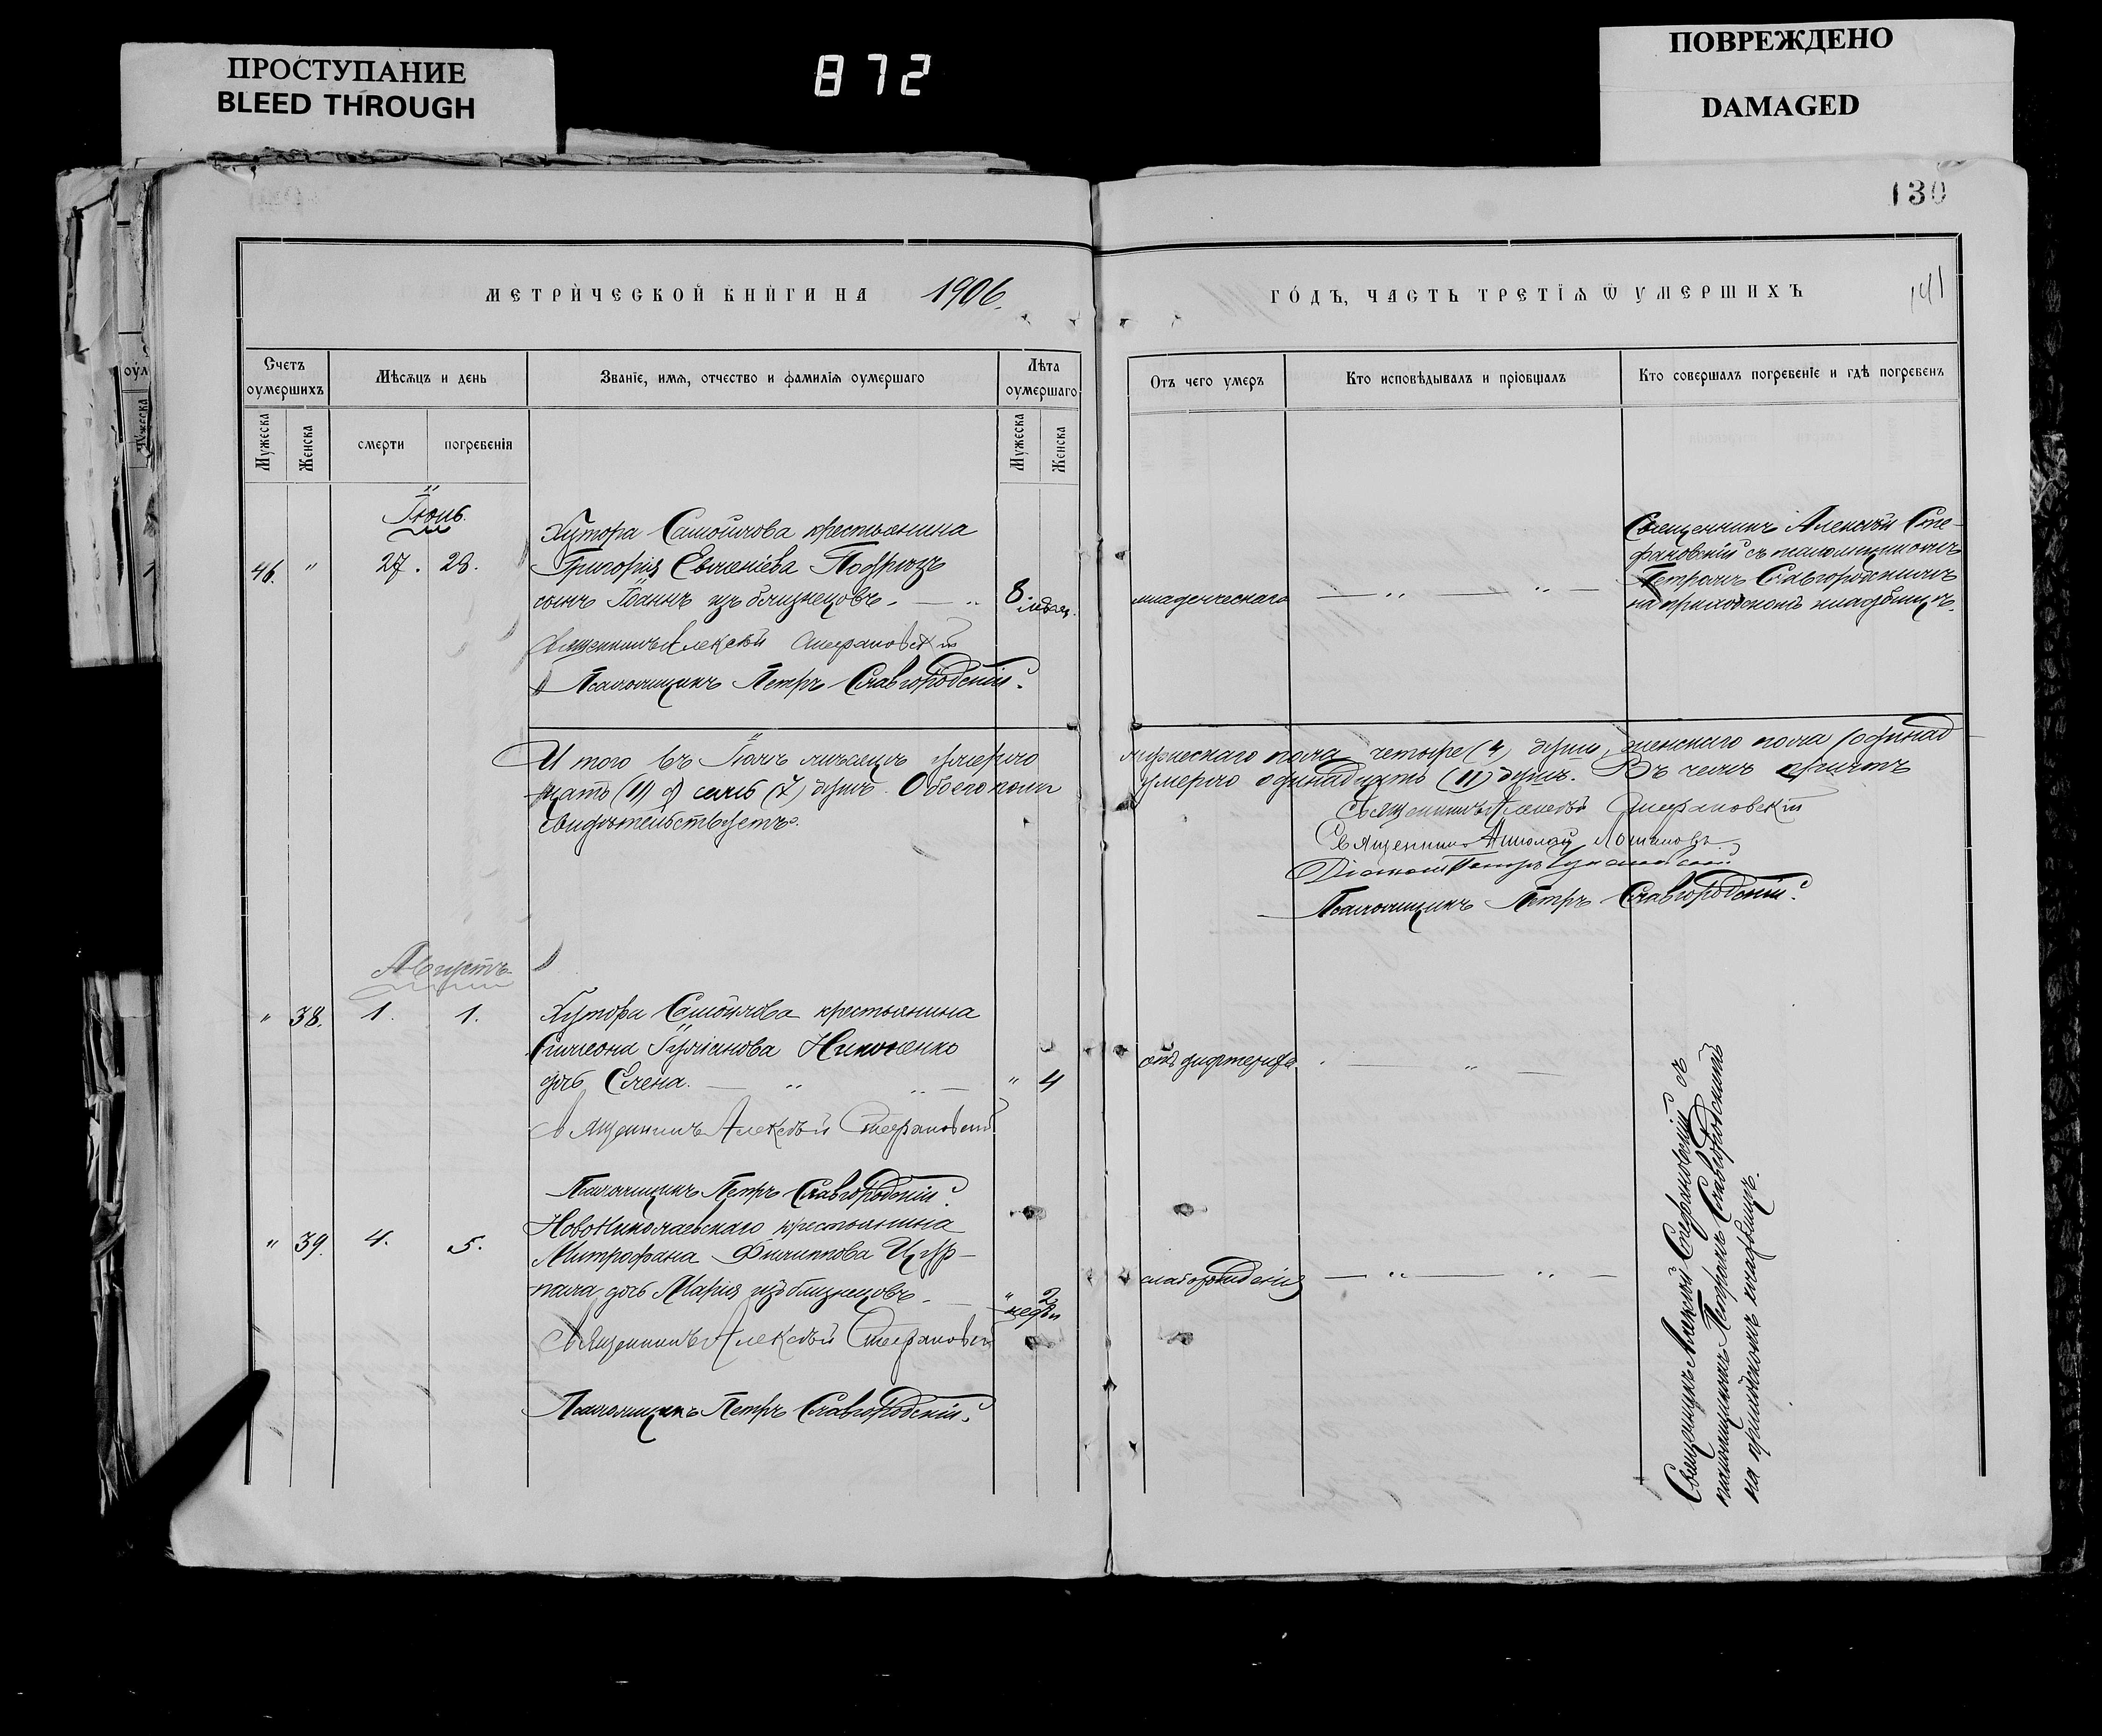 ПРОСТУПАНИЕ
BLEED THROUGH
872
ПОВРЕЖДЕНО
DAMAGED
130
МЕТРИЧЕСКОЙ КНИГИ НА 1906.
Счетъ оумершихъ
Мѣсяцъ и день
Званіе, имя, отчество и фамилія оумершаго
Лѣта оумершаго
Мужеска
Женска
смерти
погребенія
Мужеска
Женска
46. "
27. 28.
Хутора Самойлова крестьянина
Григорія
сынъ Іоаннъ изъ близнецовъ.
8
Священникъ Алексѣй Стефановскій
Псаломщикъ Петръ Славгородскій.
И того въ мѣсяцѣ умерло
цать (11) семь (7) душъ. Обоего пола
свидѣтельствуетъ.
Августъ
" 38. 1. 1.
Хутора Самойлова крестьянина
Симеона
дочь Елена.
" 4
Священникъ Алексѣй Стефановскій
Псаломщикъ Петръ Славгородскій.
" 39. 4. 5.
НовоНиколаевскаго крестьянина
Митрофана Филиппова
дочь Марія изъ близнецовъ.
" 2 недѣл
Священникъ Алексѣй Стефановскій
Псаломщикъ Петръ Славгородскій.
ГОДЪ, ЧАСТЬ ТРЕТІЯ Ѿ УМЕРШИХЪ
141
Отъ чего умеръ
Кто исповѣдывалъ и пріобщалъ
Кто совершалъ погребеніе и гдѣ погребенъ
младенческаго
Священникъ Алексѣй Сте-
фановскій съ псаломщикомъ
Петромъ Славгородскимъ
на приходскомъ кладбищѣ.
мужескаго пола четыре (4) души, женскаго пола (одинад
умерло одинадцать (11) душъ. Въ чемъ причтъ
Священникъ Алексѣй Стефановскій
Священникъ Николай
Діаконъ Петръ
Псаломщикъ Петръ Славгородскій.
отъ дифтерита
слаборожденія
Священникъ Алексѣй Стефановскій съ
псаломщикомъ Петромъ Славгородскимъ
на приходскомъ кладбищѣ.